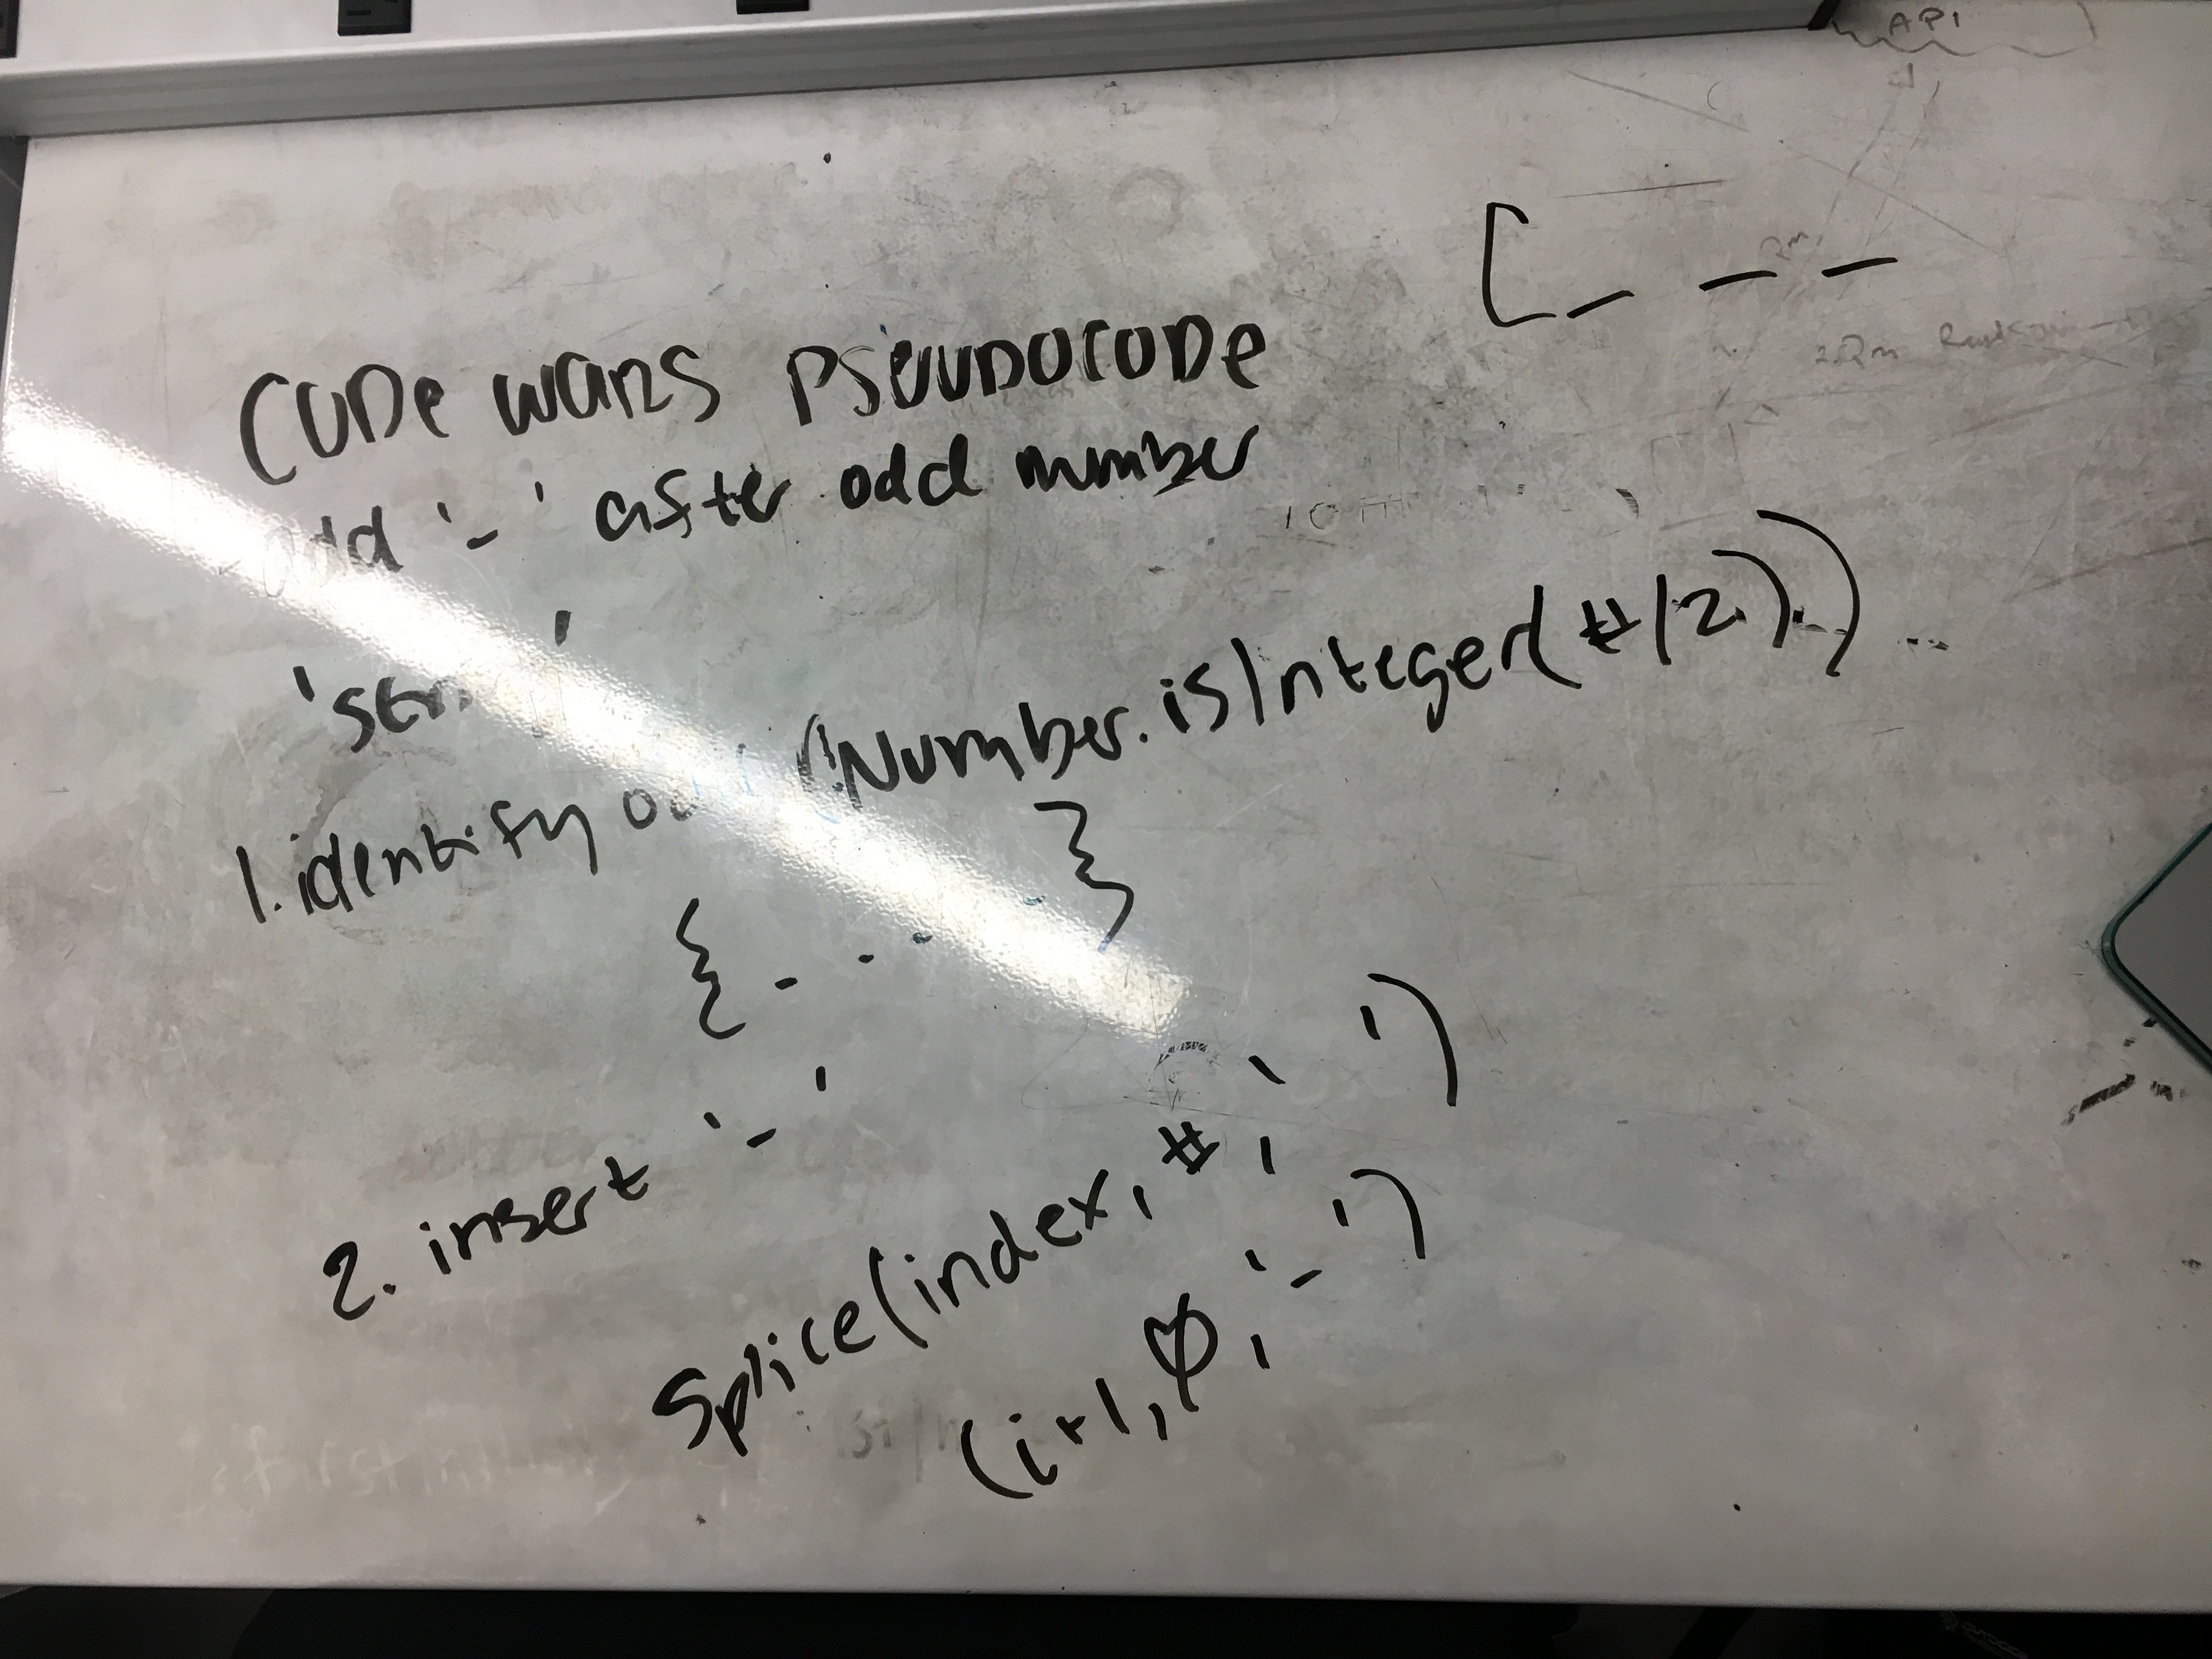 CODE WARS PSEUDOCODE [_ _ _
Add '-' after odd number
'str '
1. identify odd (Number.isInteger(#/2))
{ }
2. insert '-'
splice(index, #, ' ')
(i+1, 0, '-')
API